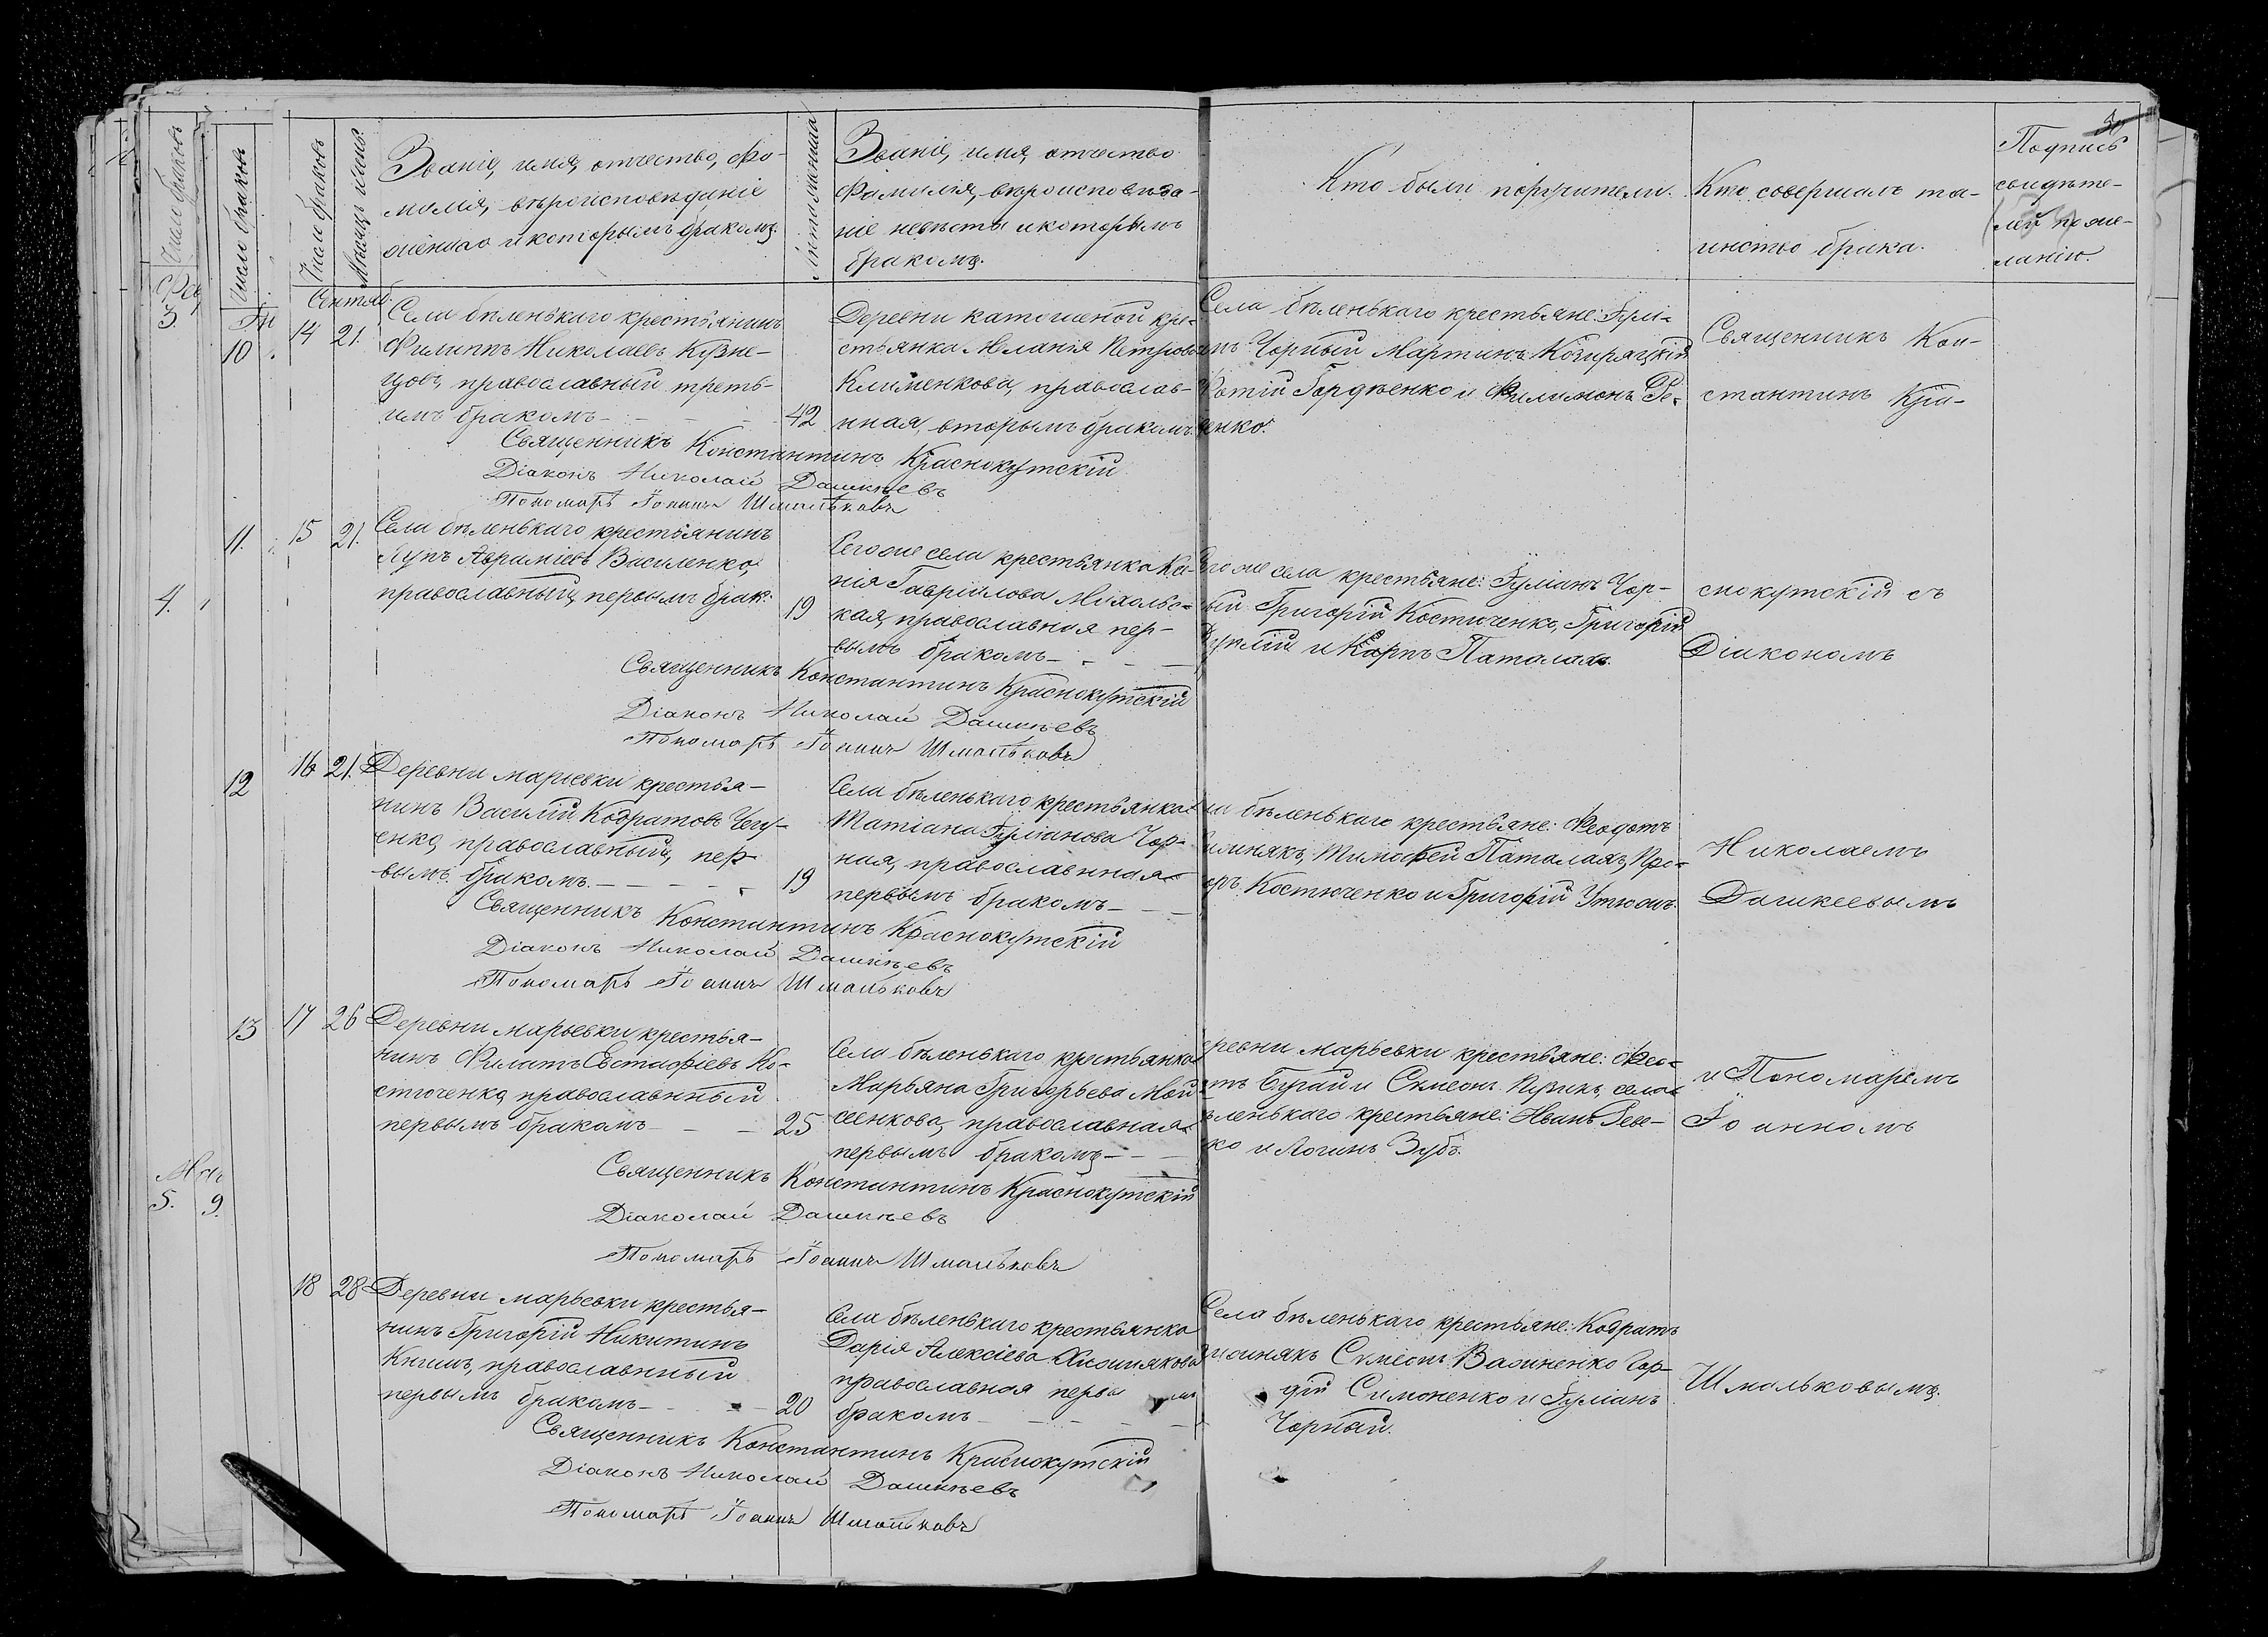 Число браковъ
Фев
3.
4.
5. 9.
Число браковъ
10
11.
12
13
Число браковъ
Мѣсяцъ и день
Званіе, имя, отчество, фа-
милія, вѣроисповѣданіе
жениха и которымъ бракомъ.
Лѣта жениха
Званіе, имя, отчество
фамилія, вѣроисповѣда-
ніе невѣсты и которымъ
бракомъ.
Кто были поручители.
Кто совершалъ та-
инство брака.
Подпись
свидѣте-
лей по же-
ланію.
Сентяб.
14 21.
Села бѣленькаго крестьянинъ
Филиппъ Николаевъ Кузне-
цовъ, православный треть-
имъ бракомъ
42
Деревни катошеной кре-
стьянка Меланія Петрова
Клименкова, православ-
ная, вторымъ бракомъ.
Села бѣленькаго крестьяне: Гри-
Чорный Мартинъ Козиряцкій
Фотій Гордѣенко и Филимонъ Ге-
енко.
Священникъ Кон-
стантинъ Кра-
Священникъ Константинъ Краснокутскій
Діаконъ Николай Дашкѣевъ
Пономарь Іоаннъ Шмальковъ
15 21.
Села бѣленькаго крестьянинъ
Лупъ Авраміевъ Василенко,
православный, первымъ брак:
19
Сего же села крестьянка Ксе-
нія Гавріилова Михольс-
кая, православная пер-
вымъ бракомъ
Сего же села крестьяне: Іуліанъ Чор-
ный Григорій Костюченко, Григорій
и Карпъ Паталахъ.
снокутскій съ
Діакономъ
Священникъ Константинъ Краснокутскій
Діаконъ Николай Дашкѣевъ
Пономарь Іоаннъ Шмальковъ
16 21.
Деревни марьевки крестья-
нинъ Василій Кодратовъ Чегу-
енко, православный, пер-
вымъ бракомъ.
19
Села бѣленькаго крестьянка
Татіана Іуліанова Чор-
ная, православная
первымъ бракомъ
ла бѣленькаго крестьяне: Феодотъ
Тимофей Паталахъ, Про-
Костюченко и Григорій Утюжъ.
Николаемъ
Дашкеевымъ
Священникъ Константинъ Краснокутскій
Діаконъ Николай Дашкѣевъ
Пономарь Іоаннъ Шмальковъ
17 26
Деревни марьевки крестья-
нинъ Филатъ Евстафіевъ Ко-
стюченко, православный
первымъ бракомъ
25
Села бѣленькаго крестьянка
Марьяна Григорьева Мой-
сеенкова, православная
первымъ бракомъ
еревни марьевки крестьяне: Фео-
тъ Бугай и Симеонъ Пузикъ, села
ѣленькаго крестьяне: Иванъ Геве-
ко и Логинъ Зубъ.
и Пономаремъ
Іоанномъ
Священникъ Константинъ Краснокутскій
Діаколай Дашкѣевъ
Пономарь Іоаннъ Шмальковъ
18 28
Деревни марьевки крестья-
нинъ Григорій Никитинъ
Книшъ, православный
первымъ бракомъ
20
Села бѣленькаго крестьянка
Дарія Алексіева Хижнякова
православная первымъ
бракомъ
Села бѣленькаго крестьяне: Кодратъ
Симеонъ Васюненко Гор-
дій Симоненко и Іуліанъ
Чорный.
Шмальковымъ.
Священникъ Константинъ Краснокутскій
Діаконъ Николай Дашкѣевъ
Пономарь Іоаннъ Шмальковъ